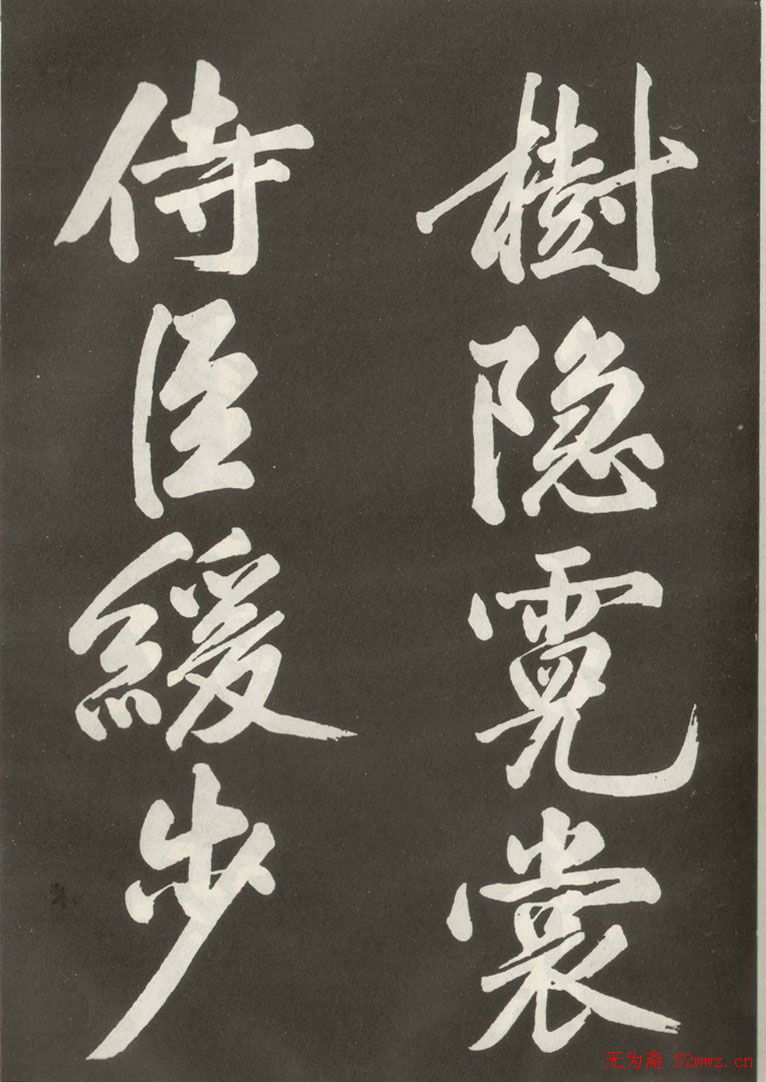 樹隐霓裳
侍臣緩步
无为斋 52wwz.cn